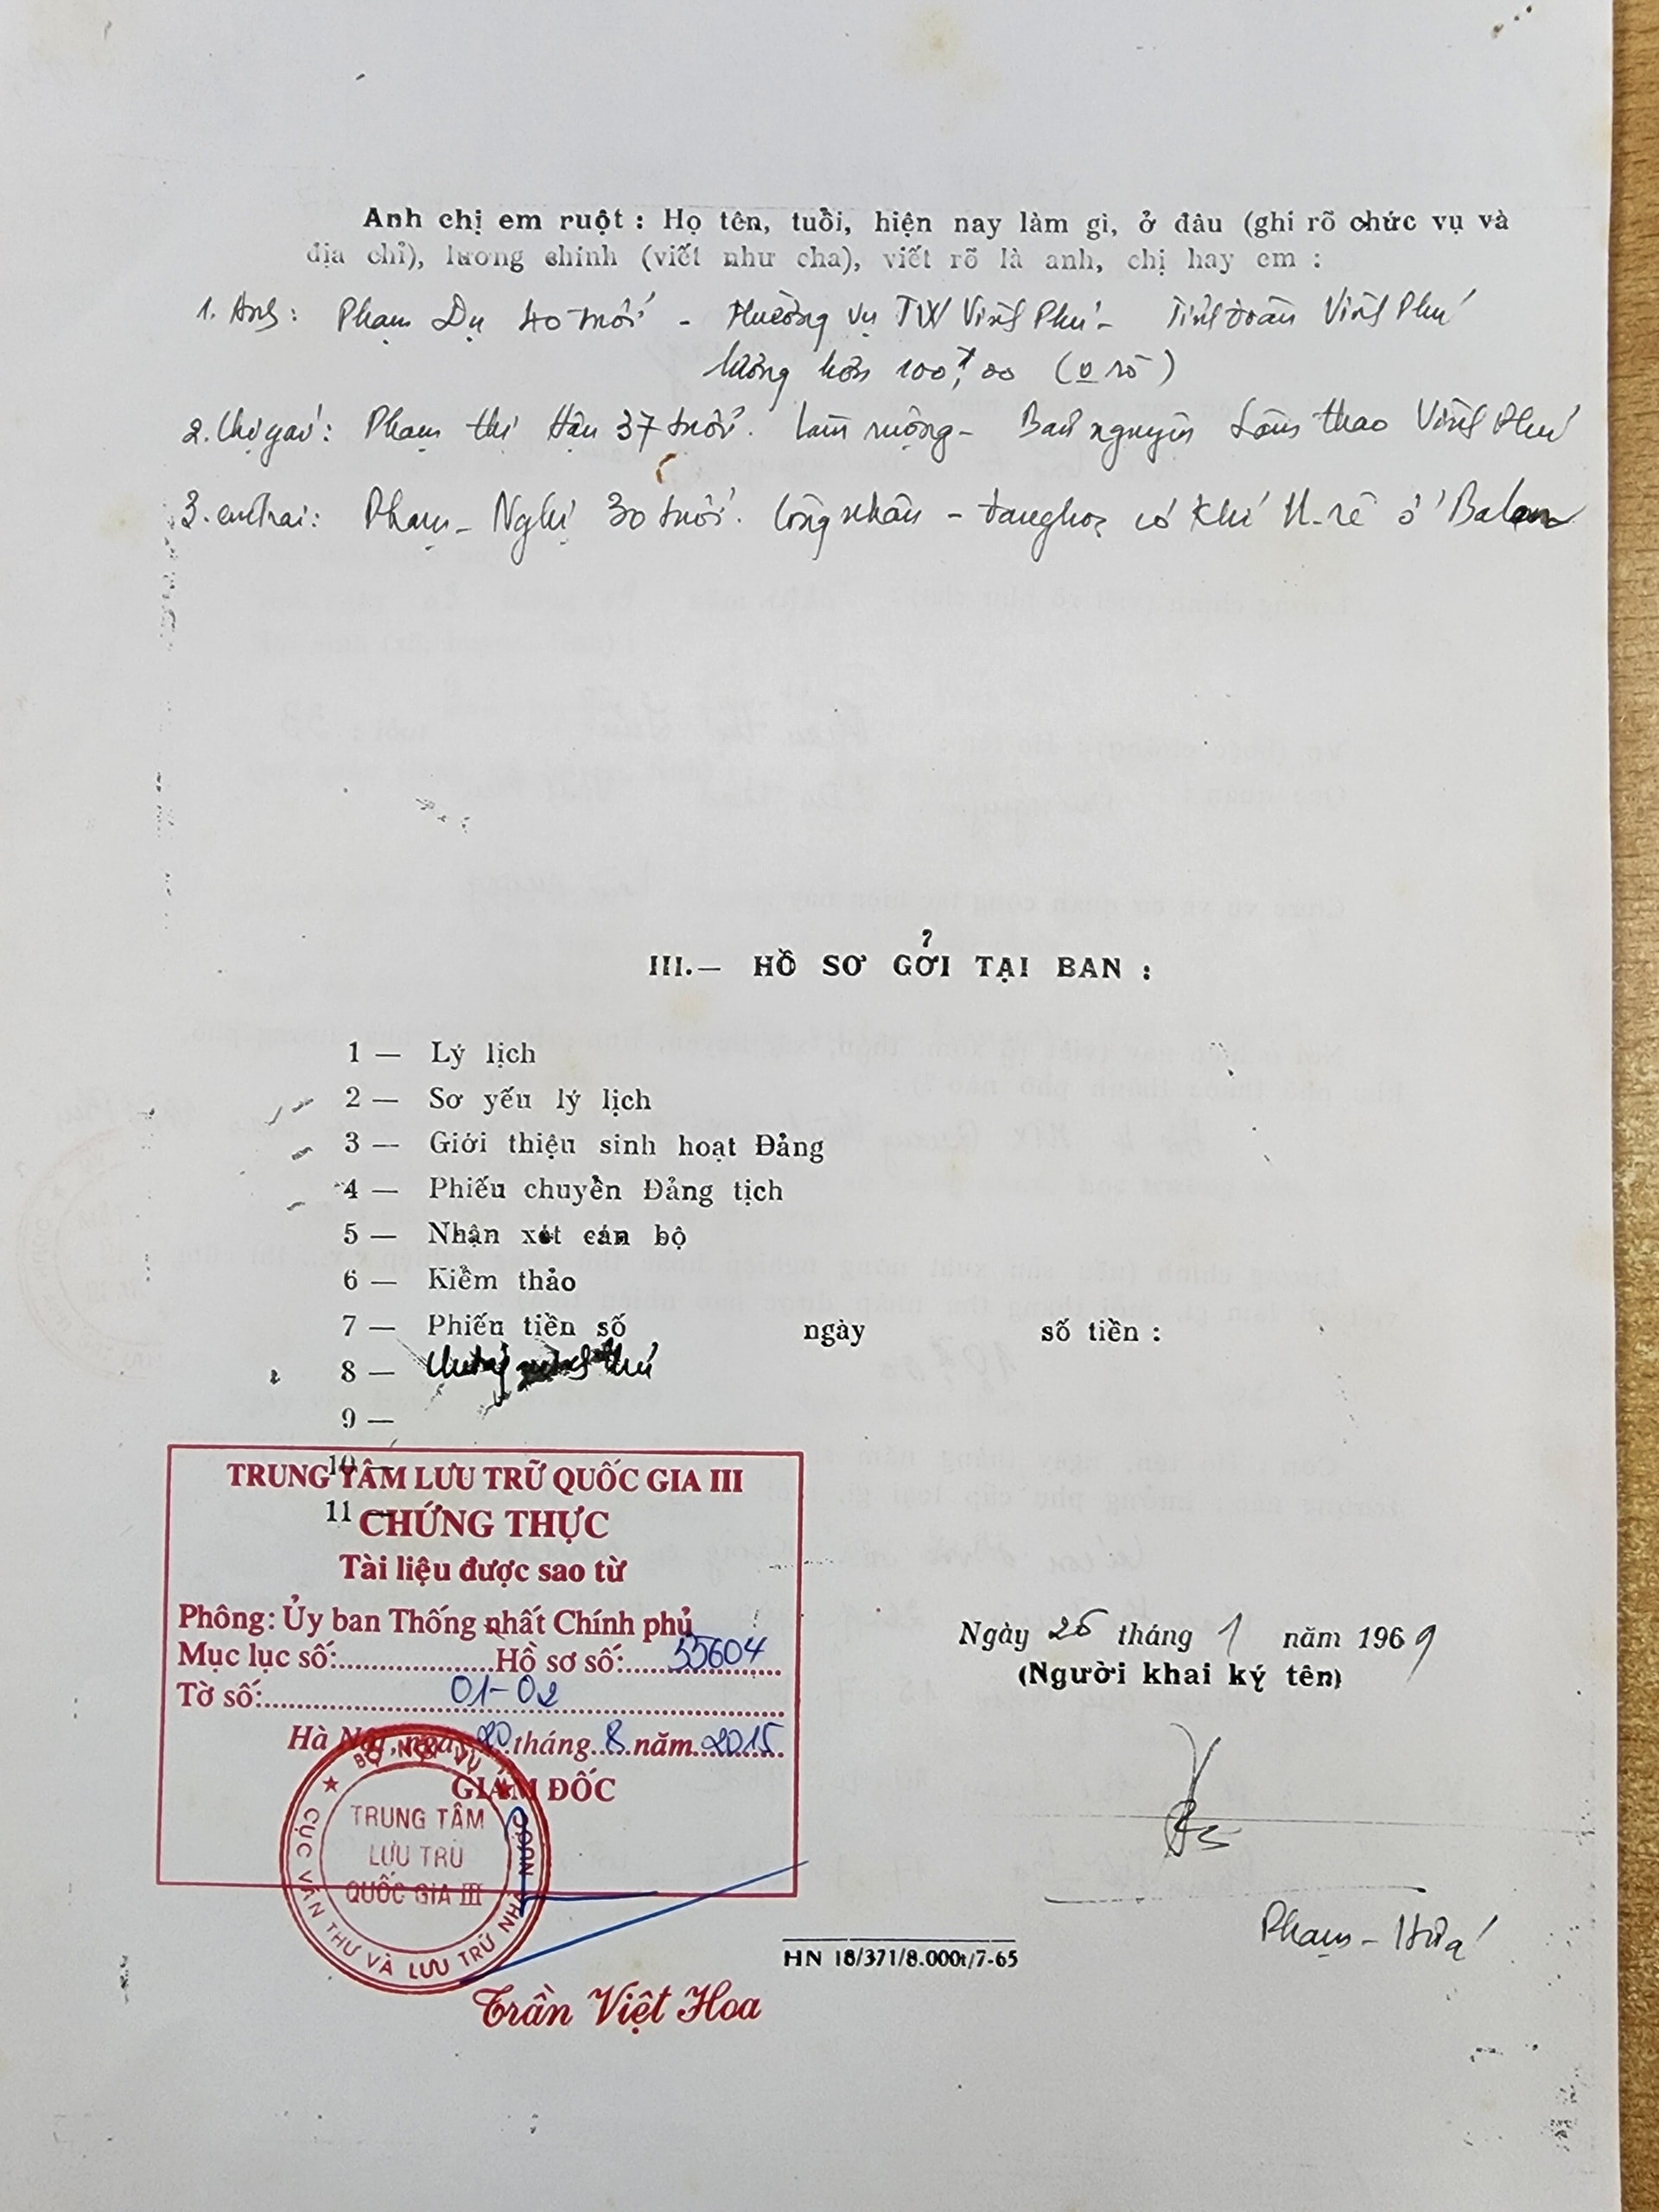 Anh chị em ruột : Họ tên, tuổi, hiện nay làm gì, ở đâu (ghi rõ chức vụ và
địa chỉ), lương chính (viết như cha), viết rõ là anh, chị hay em :
1. Anh : Phạm Dụ 40 tuổi - Thường vụ TW Vĩnh Phú - Tỉnh đoàn Vĩnh Phú
lương hơn 100,00 ( rõ )
2. Chị gái : Phạm thị Hậu 37 tuổi. Làm ruộng - Bản nguyên Lâm thao Vĩnh Phú
3. em trai : Phạm - Nghị 30 tuổi. Công nhân - đang học cơ khí ở Balan
III.— HỒ SƠ GỞI TẠI BAN :
1 — Lý lịch
2 — Sơ yếu lý lịch
3 — Giới thiệu sinh hoạt Đảng
4 — Phiếu chuyển Đảng tịch
5 — Nhận xét cán bộ
6 — Kiểm thảo
7 — Phiếu tiền số ngày số tiền :
8 —
9 —
10 —
11 —
TRUNG TÂM LƯU TRỮ QUỐC GIA III
CHỨNG THỰC
Tài liệu được sao từ
Phông: Ủy ban Thống nhất Chính phủ
Mục lục số:....................Hồ sơ số:......55604
Tờ số:........01-02
Hà Nội, ngày 20 tháng 8 năm 2015
GIÁM ĐỐC
BỘ NỘI VỤ
CỤC VĂN THƯ VÀ LƯU TRỮ NHÀ NƯỚC
TRUNG TÂM
LƯU TRỮ
QUỐC GIA III
Trần Việt Hoa
Ngày 25 tháng 1 năm 1969
(Người khai ký tên)
Phạm -
HN 18/371/8.000t/7-65